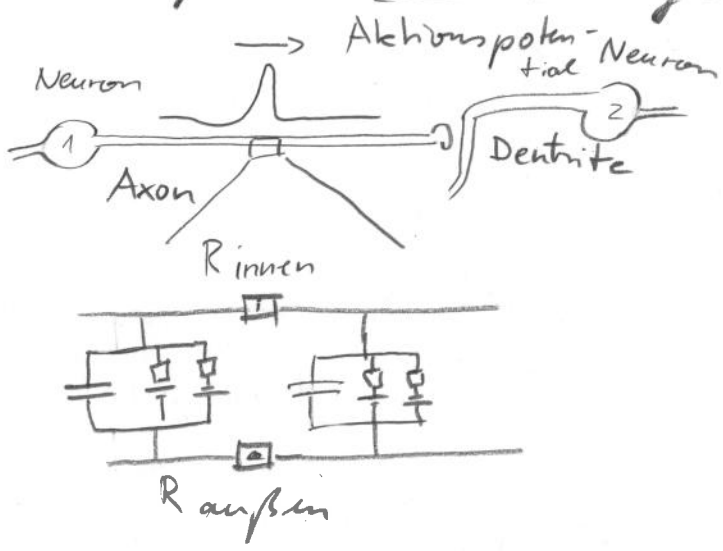 Aktionspoten-
tial
Neuron
Neuron
1
2
Axon
Dentrite
R innen
R außen